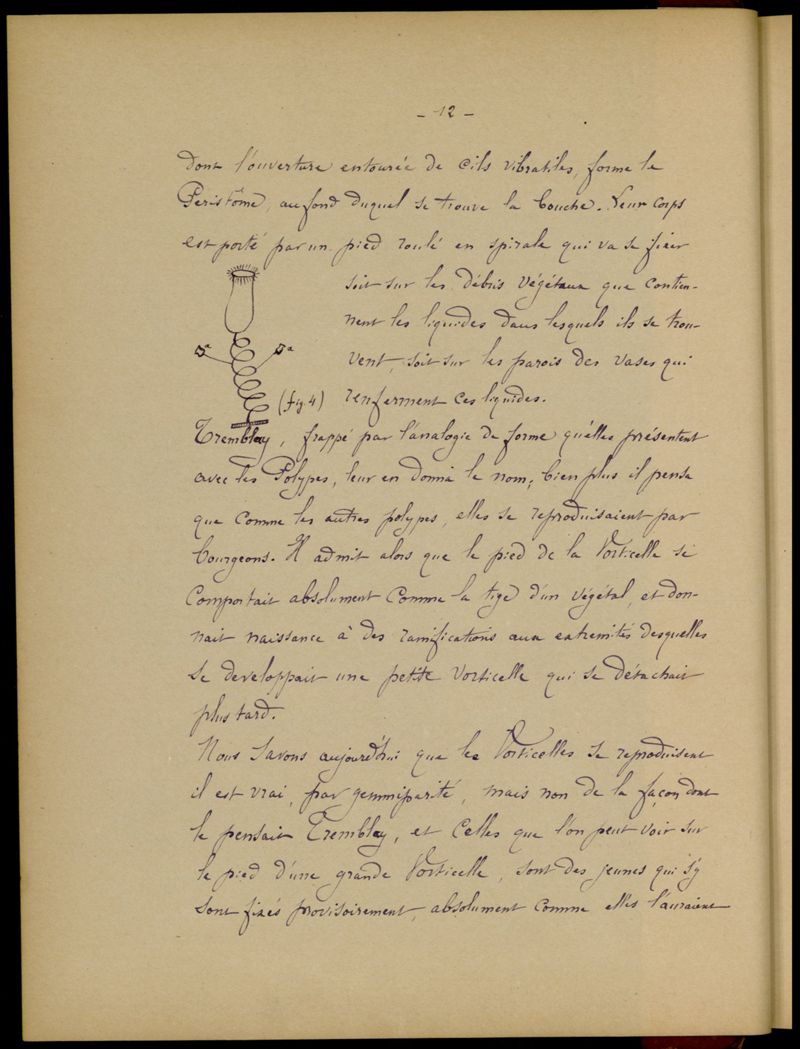 - 12 -
dont l'ouverture entourée de cils vibratiles, forme le
Péristôme, au fond duquel se trouve la bouche. Leur corps
est porté par un pied roulé en spirale qui va se fixer
soit sur les débris végétaux que contien-
nent les liquides dans lesquels ils se trou-
vent, soit sur les parois des vases qui
a
a
(fig. 4) renferment ces liquides.
Trembley, frappé par l'analogie de forme qu'elles présentent
avec les Polypes, leur en donna le nom; bien plus il pensa
que comme les autres polypes, elles se reproduisaient par
bourgeons. Il admit alors que le pied de la Vorticelle se
comportait absolument comme la tige d'un végétal, et don-
nait naissance à des ramifications aux extremités desquelles
se developpait une petite Vorticelle qui se détachait
plus tard.
Nous savons aujourd'hui que les Vorticelles se reproduisent
il est vrai, par gemmiparité, mais non de la façon dont
le pensait Trembley, et celles que l'on peut voir sur
le pied d'une grande Vorticelle, sont des jeunes qui s'y
sont fixés provisoirement, absolument comme elles l'auraient